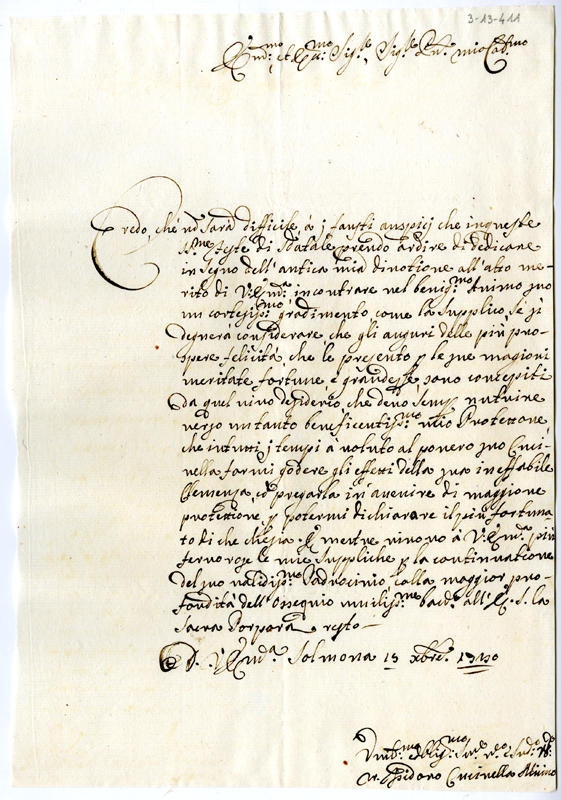 3-13-411
Em.mo et R.mo Sig.re Sig.re P.ne mio Col.mo
Credo, che nõ sarà difficile, à i fausti auspicij che in queste
S.me feste di Natale prendo ardire di dedicare
in segno dell'antica mia divotione all'alto me=
rito di V. Em.za incontrare nel benig.mo Animo suo
un cortesiss.mo gradimento come la supplico, se si
degnerà considerare, che gli auguri delle più pro=
spere felicità, che le presento p le sue maggiori
meritate fortune, e grandezze sono concepiti
da quel vivo desiderio che devo semp nutrire
verso un tanto beneficentiss.mo mio Protettore,
che in tutti i tempi à voluto al povero suo Cuci=
nella farmi godere gli effetti della sua ineffabile
Clemenza, e pregarla in avvenire di maggiore
protettione p potermi dichiarare il più fortuna
to di che che sia. E mentre rinovo à V. Em.za più
fervorose le mie suppliche p la continuatione
del suo validiss.mo Padrocinio, colla maggior pro=
fondità dell'ossequio umiliss.me bacio all' E. S. la
Sacra Porpora, e resto
D. V. Em.za Solmona 15 Xbre
Isidoro Cucinella